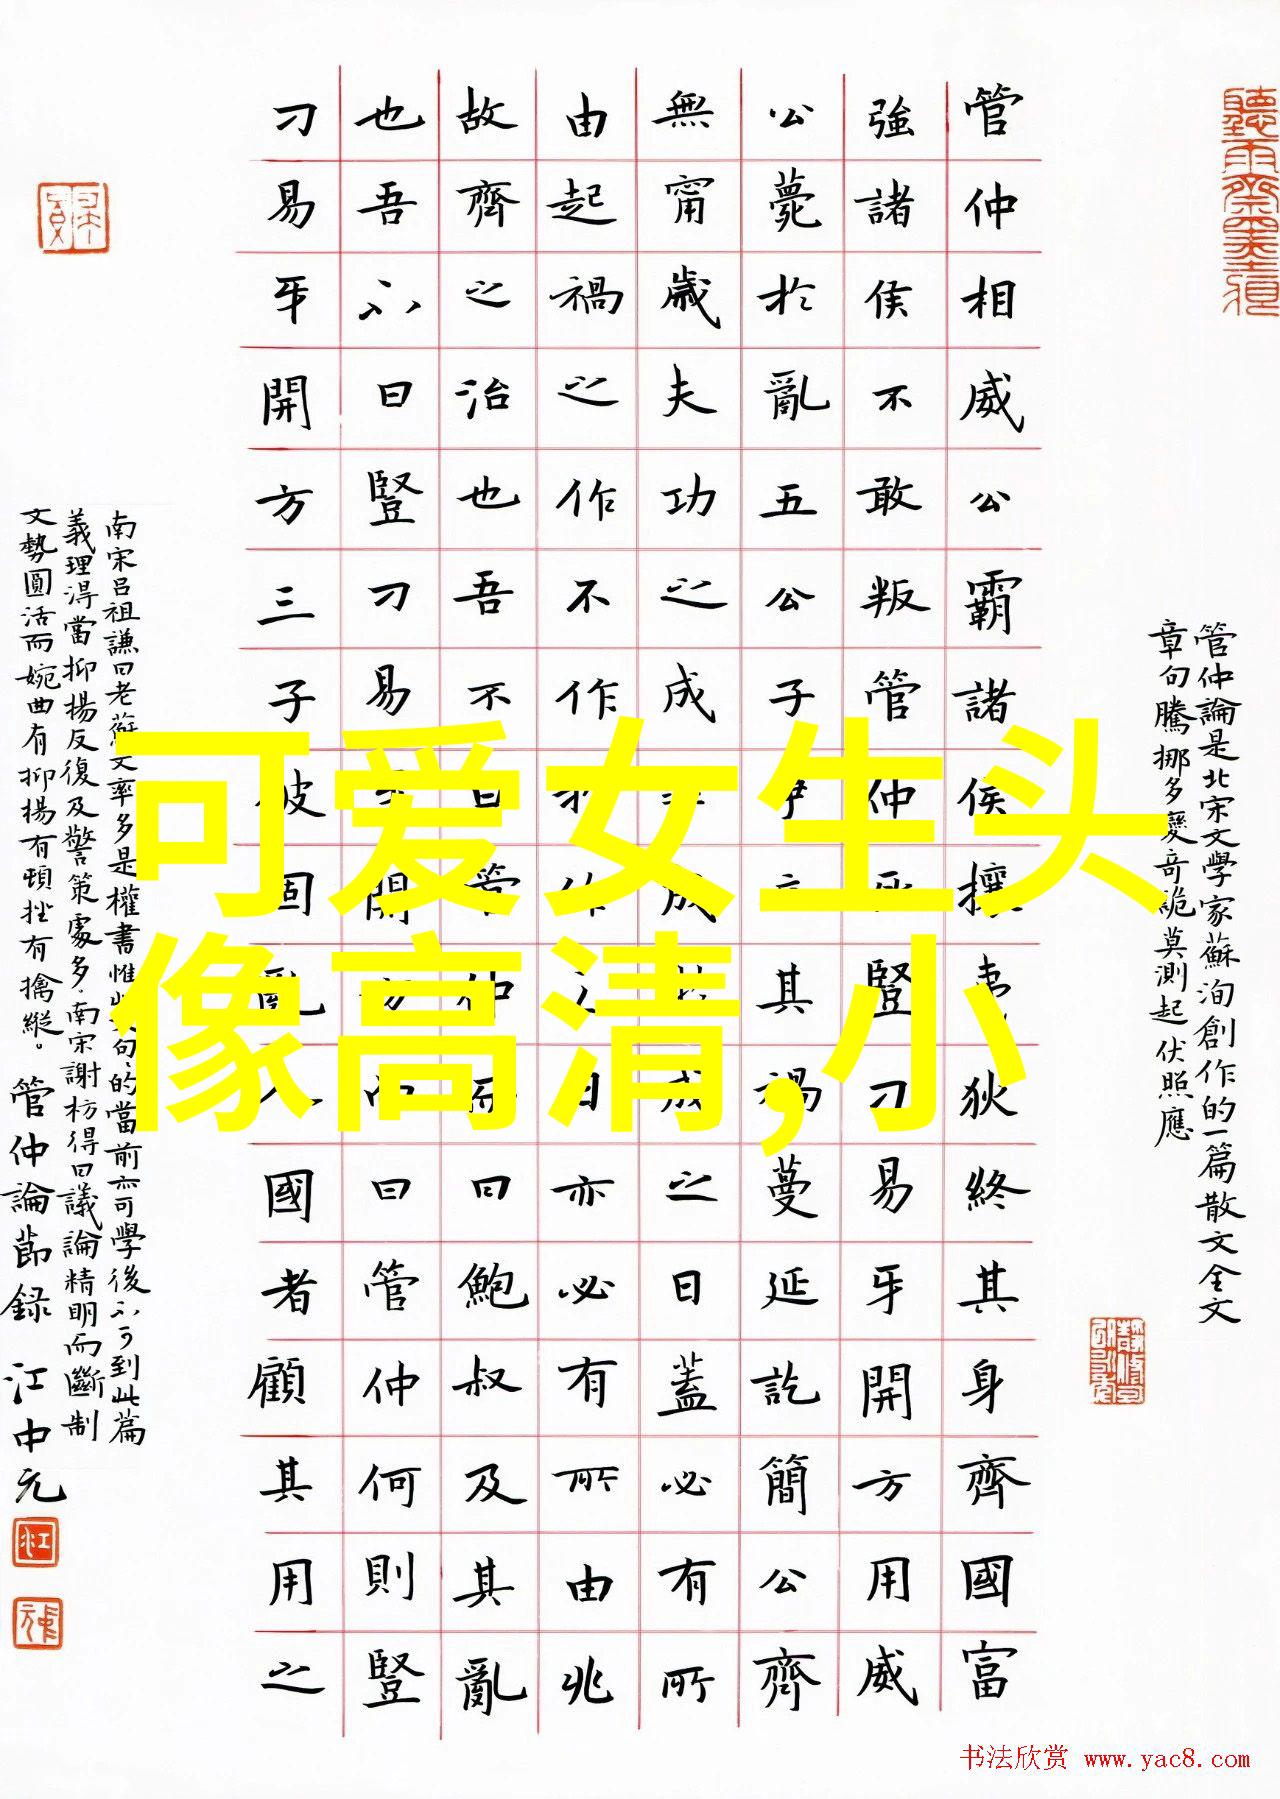 管仲論是北宋文學家蘇洵創作的一篇散文全文
章句騰挪多變奇詭莫測起伏照應
管仲相威公霸諸侯攘夷狄終其身齊國富
強諸侯不敢叛管仲死豎刁易牙開方用威
公薨於亂五公子爭立其禍蔓延訖簡公齊
無甯歲夫功之成非成於成之日蓋必有所
由起禍之作不作於作之日亦必有所由兆
故齊之治也吾不曰管仲而曰鮑叔及其亂
也吾不曰豎刁易牙開方而曰管仲何則豎
刁易牙開方三子彼固亂人國者顧其用之
南宋呂祖謙曰老蘇文率多是權書惟此句的當前亦可學後不可到此篇
義理得當抑揚反復及警策處多南宋謝枋得曰議論精明而斷制
文勢圓活而婉曲有抑揚有頓挫有擒縱。管仲論節錄 江中元
可爱女生头
像高清,小
书法欣赏 www.yac8.com